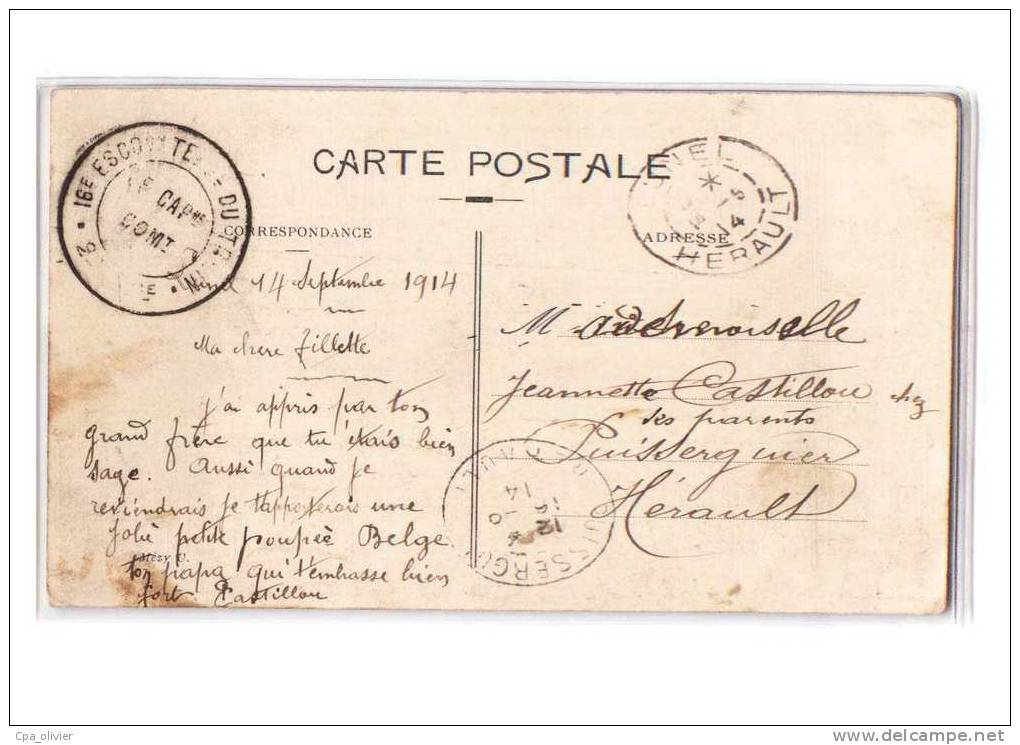 CARTE POSTALE
CORRESPONDANCE
ADRESSE
16E ESCO DU
CAPNE
COMT
HERAULT
14
14 Septembre 1914
Ma chere fillette
j'ai appris par ton
grand frère que tu étais bien
sage. Aussi quand je
reviendrais je t'apporterais une
jolie petite poupée Belge
ton papa qui t'embrasse bien
fort Castillou
Mademoiselle
Jeannette Castillou chez
ses parents
Puisserguier
Hérault
14
12
Cpa_olivier
www.delcampe.net